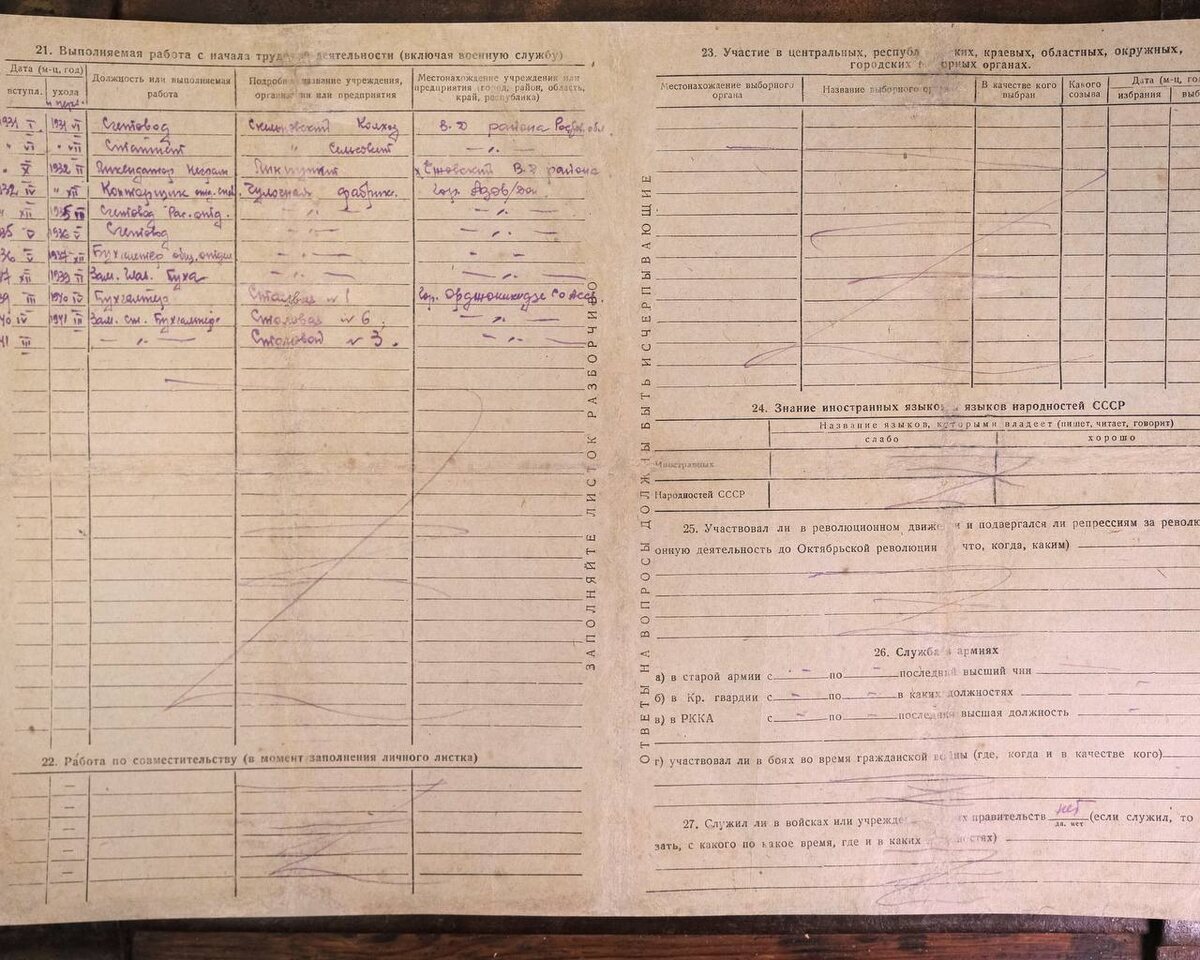 21. Выполняемая работа с начала трудовой деятельности (включая военную службу)
Дата (м-ц, год)
вступл. ухода
Должность или выполняемая работа
Подробное название учреждения, организации или предприятия
Местонахождение учреждения или предприятия (город, район, область, край, республика)
1931 I 1931 VI Счетовод Колхоз В.Д района
" VI " VII " Сельсовет — " —
" X 1932 II В.Д района
1932 IV " XII Конторщик Чулочная фабрик. гор. Азов/Дон
" XII 1935 Счетовод Рас. отд. — " — — " —
35 V 1936 V Счетовод — " — — " —
36 V 1937 XII Бухгалтер общ. отдела — " — - -
37 XII 1939 II Зам. Глав. Буха — " — — " —
39 III 1940 IV Бухгалтер Столовая № 1 Гор. Орджоникидзе
40 IV 1941 III Зам. ст. Бухгалтера Столовая № 6 — " —
41 III — " — Столовой № 3. — " —
22. Работа по совместительству (в момент заполнения личного листка)
ЗАПОЛНЯЙТЕ ЛИСТОК РАЗБОРЧИВО
ОТВЕТЫ НА ВОПРОСЫ ДОЛЖНЫ БЫТЬ ИСЧЕРПЫВАЮЩИЕ
23. Участие в центральных, респуб ких, краевых, областных, окружных,
городских в орных органах.
Местонахождение выборного органа
Название выборного ор
В качестве кого выбран
Какого созыва
Дата (м-ц, го
избрания выб
24. Знание иностранных языко и языков народностей СССР
Название языков, которыми владеет (пишет, читает, говорит)
слабо хорошо
Иностранных
Народностей СССР
25. Участвовал ли в революционном движе и и подвергался ли репрессиям за револю
онную деятельность до Октябрьской революции что, когда, каким)
26. Служба в армиях
а) в старой армии с - - по - последний высший чин
б) в Кр. гвардии с - по - в каких должностях
в) в РККА с - по - последняя высшая должность -
г) участвовал ли в боях во время гражданской войны (где, когда и в качестве кого)
27. Служил ли в войсках или учрежде х правительств нет (если служил, то
да, нет
зать, с какого по какое время, где и в каких остях)